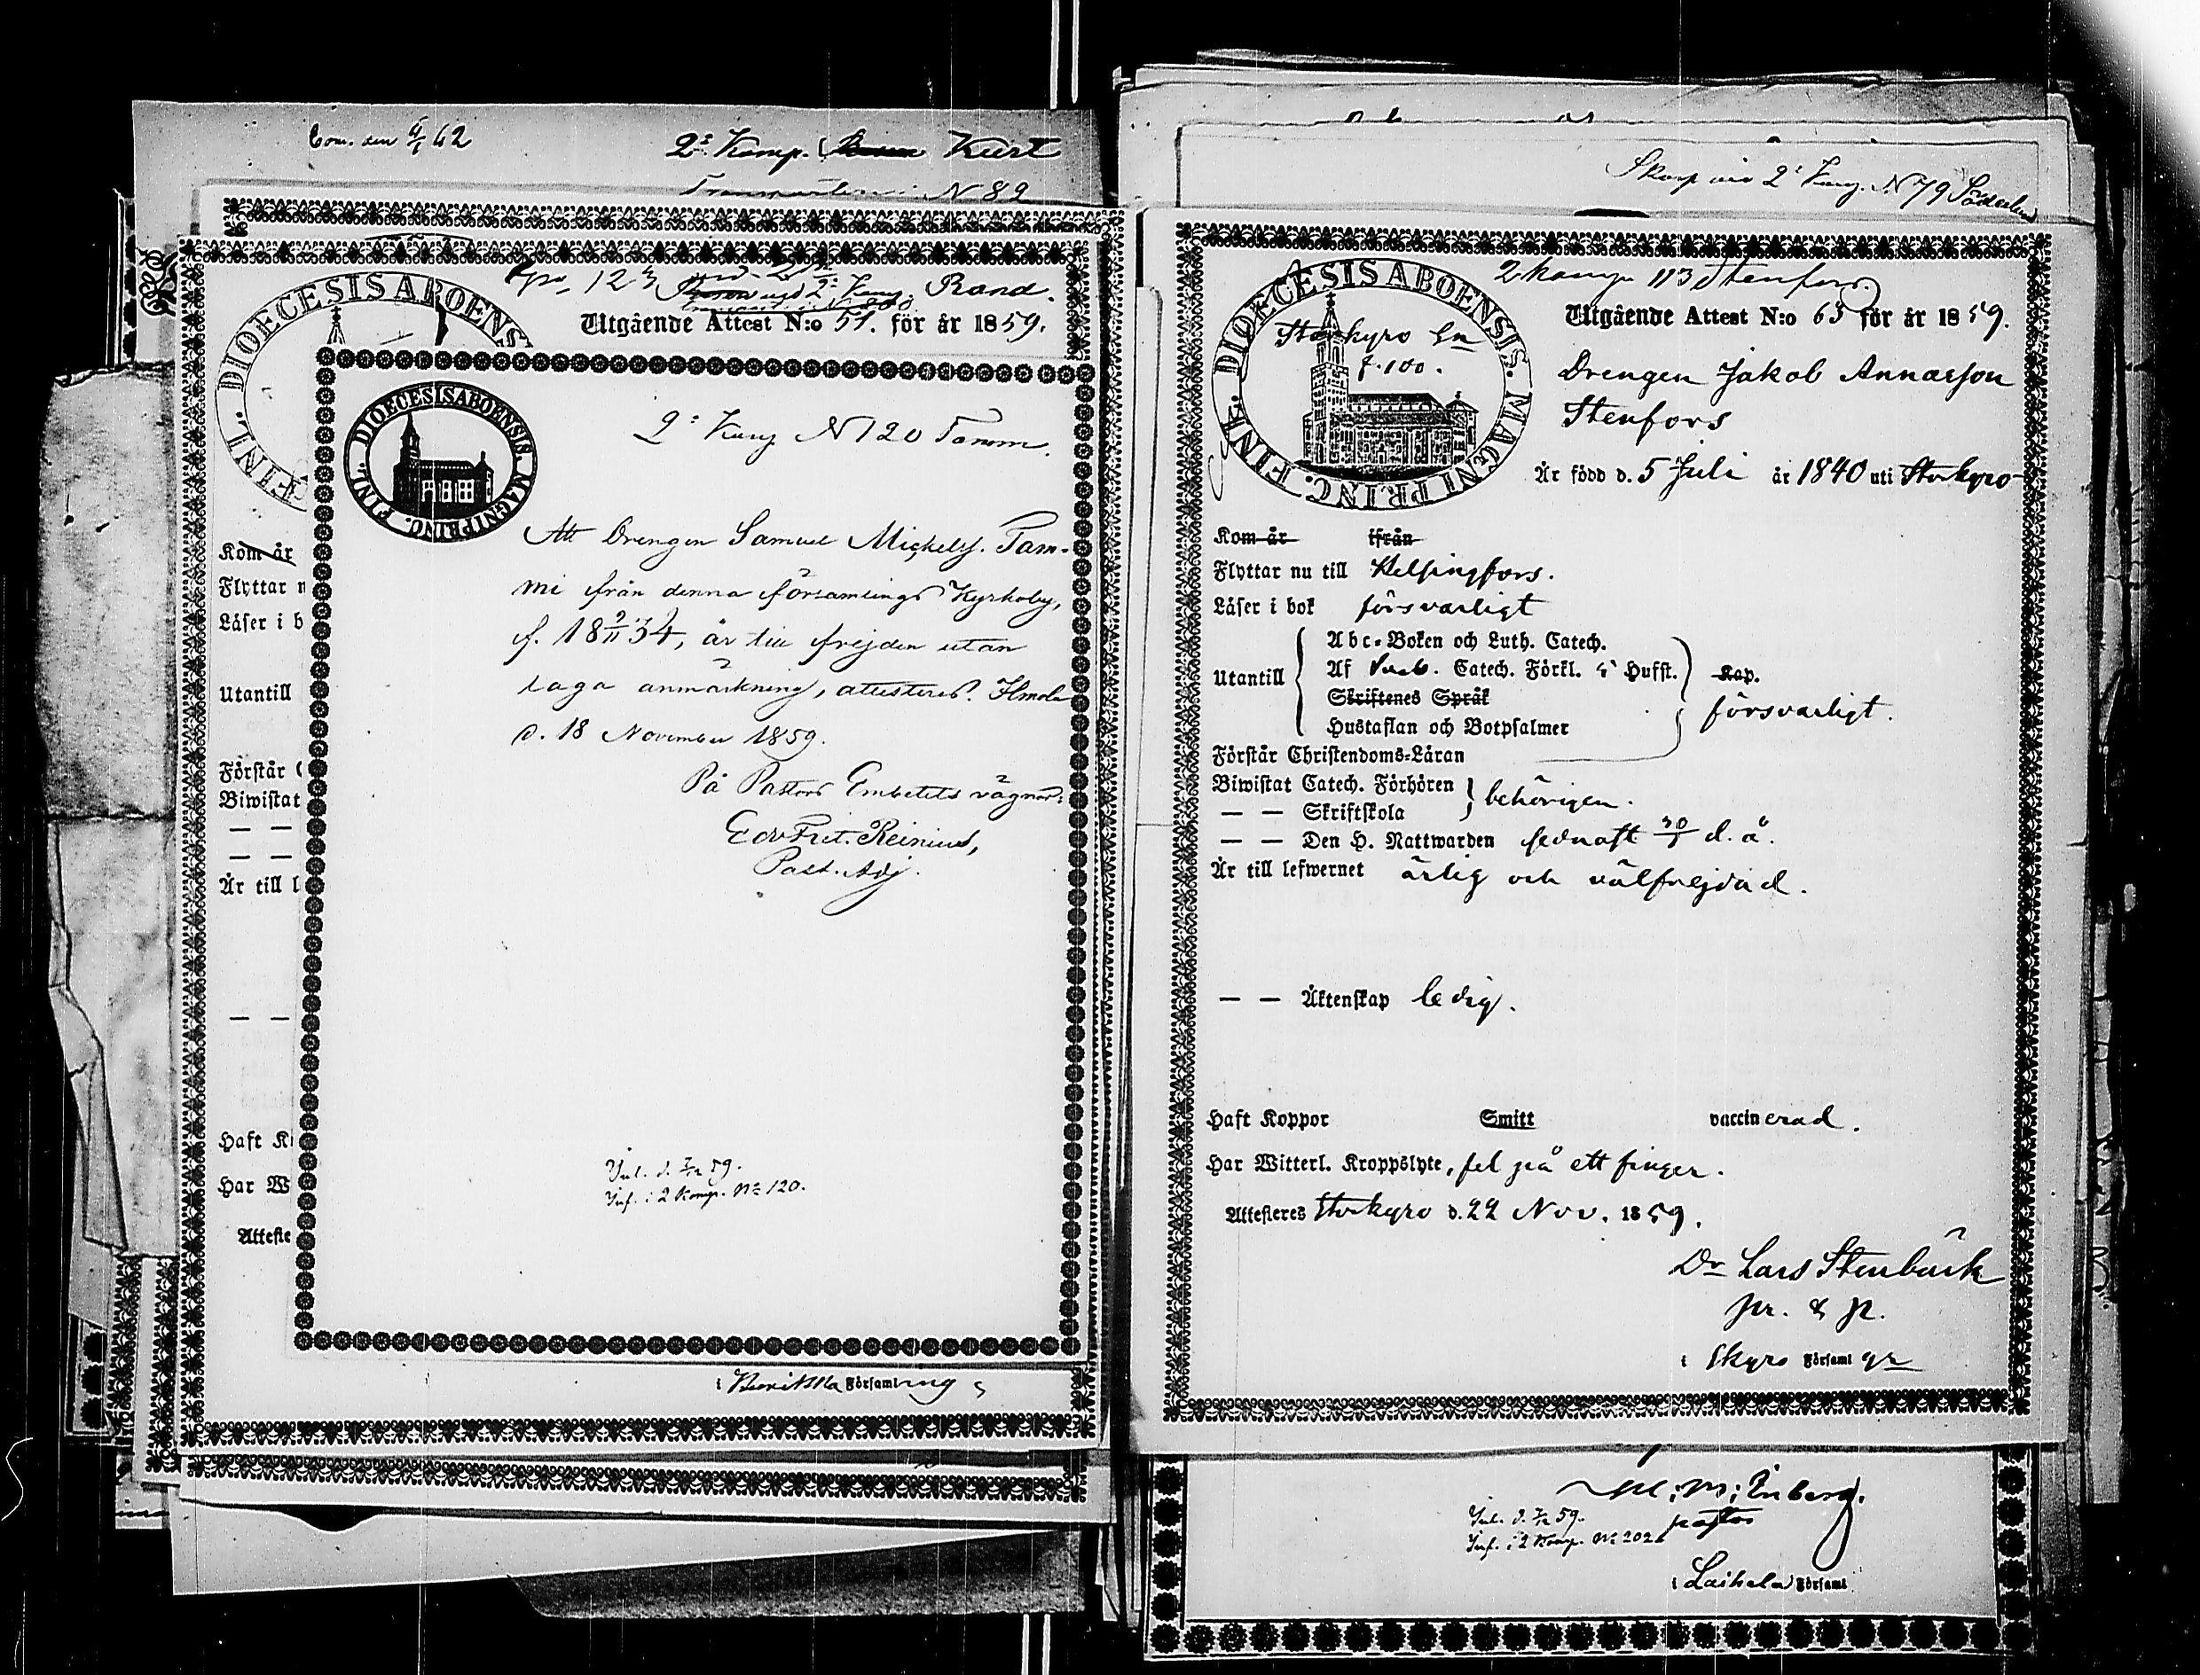 Com. den 4/1 62
2:a Komp. Kurt
N 89
DIOECESIS ABOENS
FINL.
No. 123
Rand.
Utgående Attest N:o 51. för år 1859.
Kom år
Flyttar n
Läser i b
Utantill
Förstår
Biwistat
— —
— —
Är till l
— —
Haft K
Har W
Atteste
DIOECESIS ABOENSIS. MAGNI PRINC. FINL.
2:a Komp N 120 Tamm.
Att Drengen Samuel Michelss. Tam-
mi från denna församlings Kyrkoby,
f. 18 9/11 34, är till frejden utan
laga anmärkning, attesteras. Ilmola
d. 18 November 1859.
På Pastors Embetets vägnar:
Edv Frit. Reinius,
Past. Adj.
Inl. d. 7/12 59.
Inf. i 2 Komp. No 120.
i Församling
Skarp vid 2:a Komp. N 79 Söderlund
DIOECESIS ABOENSIS. MAGNI PRINC. FINL.
Storkyro Sn
f. 100.
2 komp 113 Stenfors.
Utgående Attest N:o 63 för år 1859.
Drengen Jakob Annasson
Stenfors
Är född d. 5 Juli år 1840 uti Storkyro
Kom år ifrån
Flyttar nu till Helsingfors.
Läser i bok försvarligt
Utantill
Abc-Boken och Luth. Catech.
Af Catech. Förkl. 5 Hufst. Kap.
Skriftenes Språk
Hustaflan och Botpsalmer
försvarligt.
Förstår Christendoms-Läran
Biwistat Catech. Förhören
— — Skriftskola
behörigen.
— — Den H. Nattwarden sednast 30/5 d. å.
Är till lefwernet ärlig och välfrejdad.
— — Äktenskap ledig.
Haft Koppor Smitt vaccinerad.
Har Witterl. Kroppslyte, fel på ett finger.
Attesteres Storkyro d. 22 Nov. 1859.
Dr Lars Stenbäck
pr. & p.
i Skyro Församl gr
M: M: Enberg.
pastor
Inl. d. 7/12 59.
Inf. i 2 Komp. No 202
i Laihela Församl